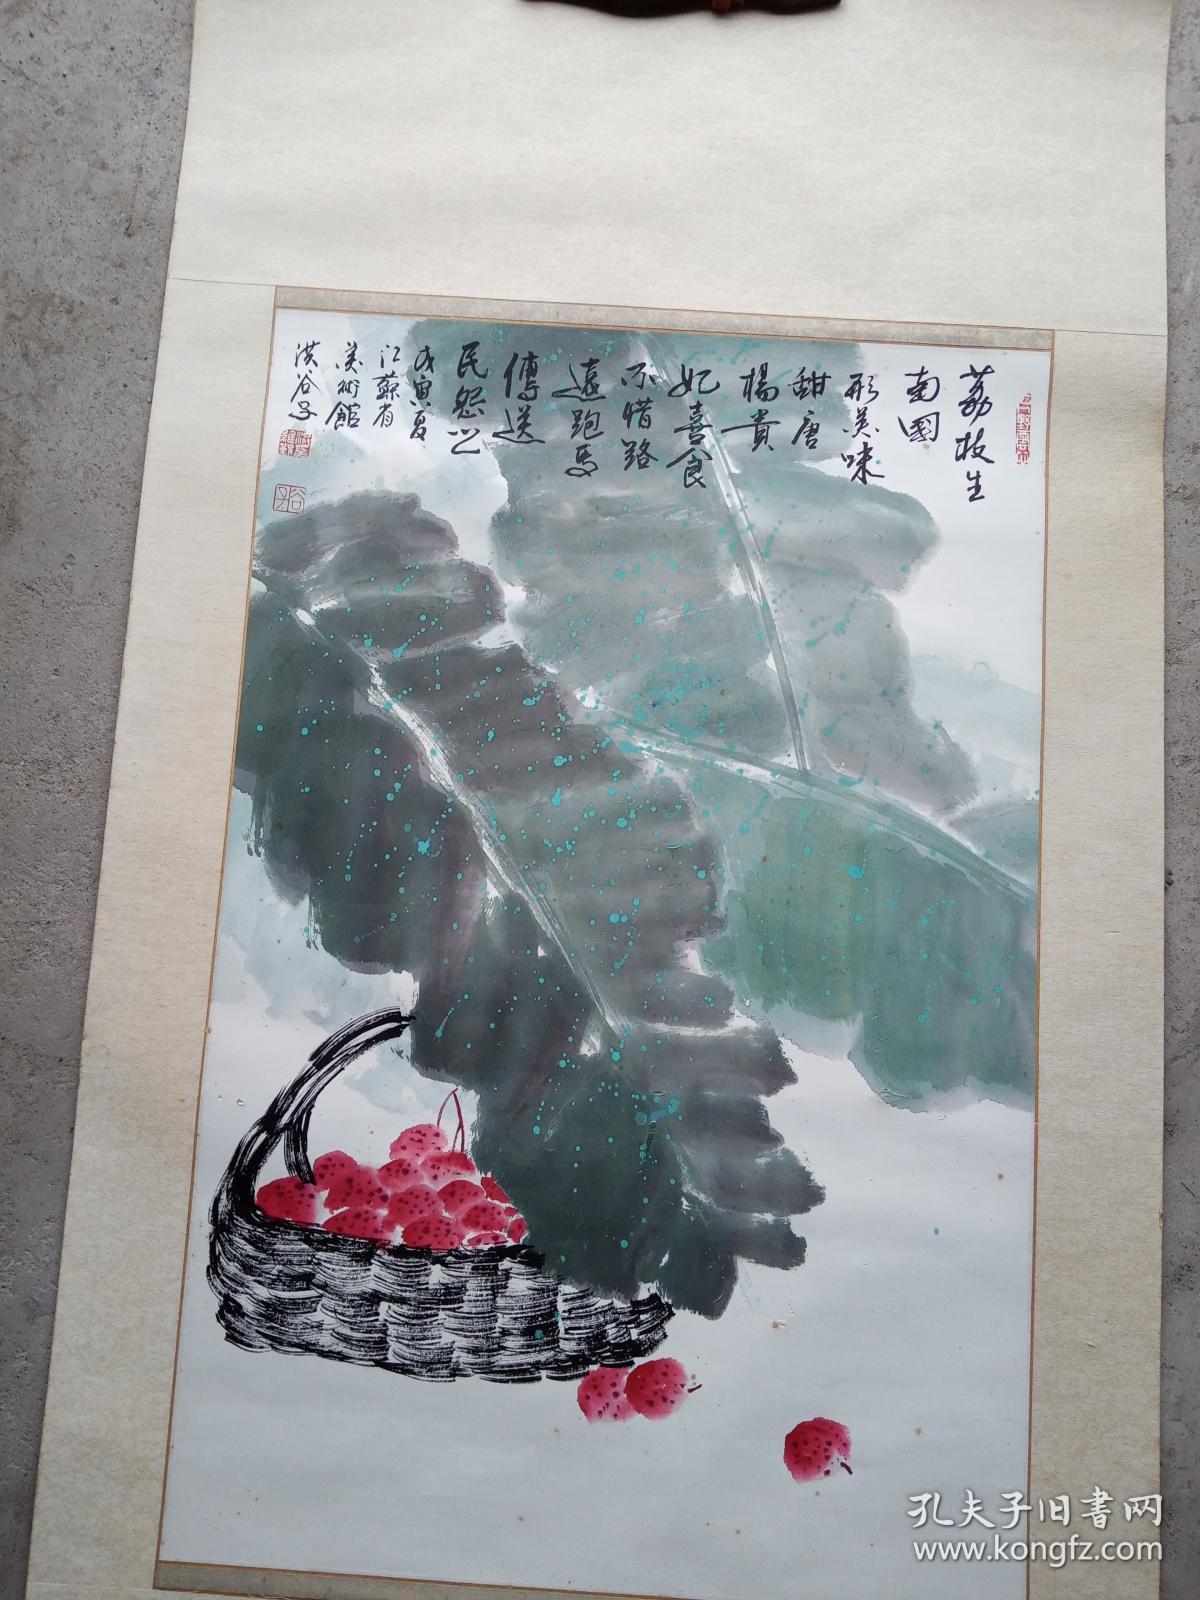 荔枝生
南國
形美味
甜唐
楊貴
妃喜食
不惜路
遠跑馬
傳送
民怨之
戊寅夏
江蘇省
美術館
洪谷子
孔夫子旧書网
www.kongfz.com